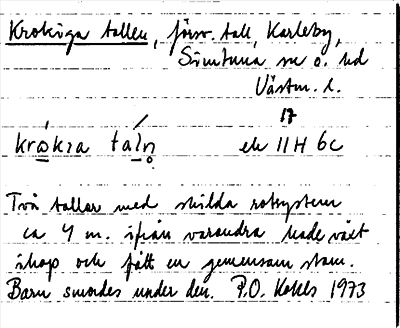 Krokiga tallen, försv. tall, Karleby,
Simtuna sn o. hd
Västm. l.
17
krókra táln̥ ek 11H 6c
Två tallar med skilda rotsystem
ca 4 m. ifrån varandra hade växt
ihop och fått en gemensam stam.
Barn smordes under den. P.O. Kells 1973